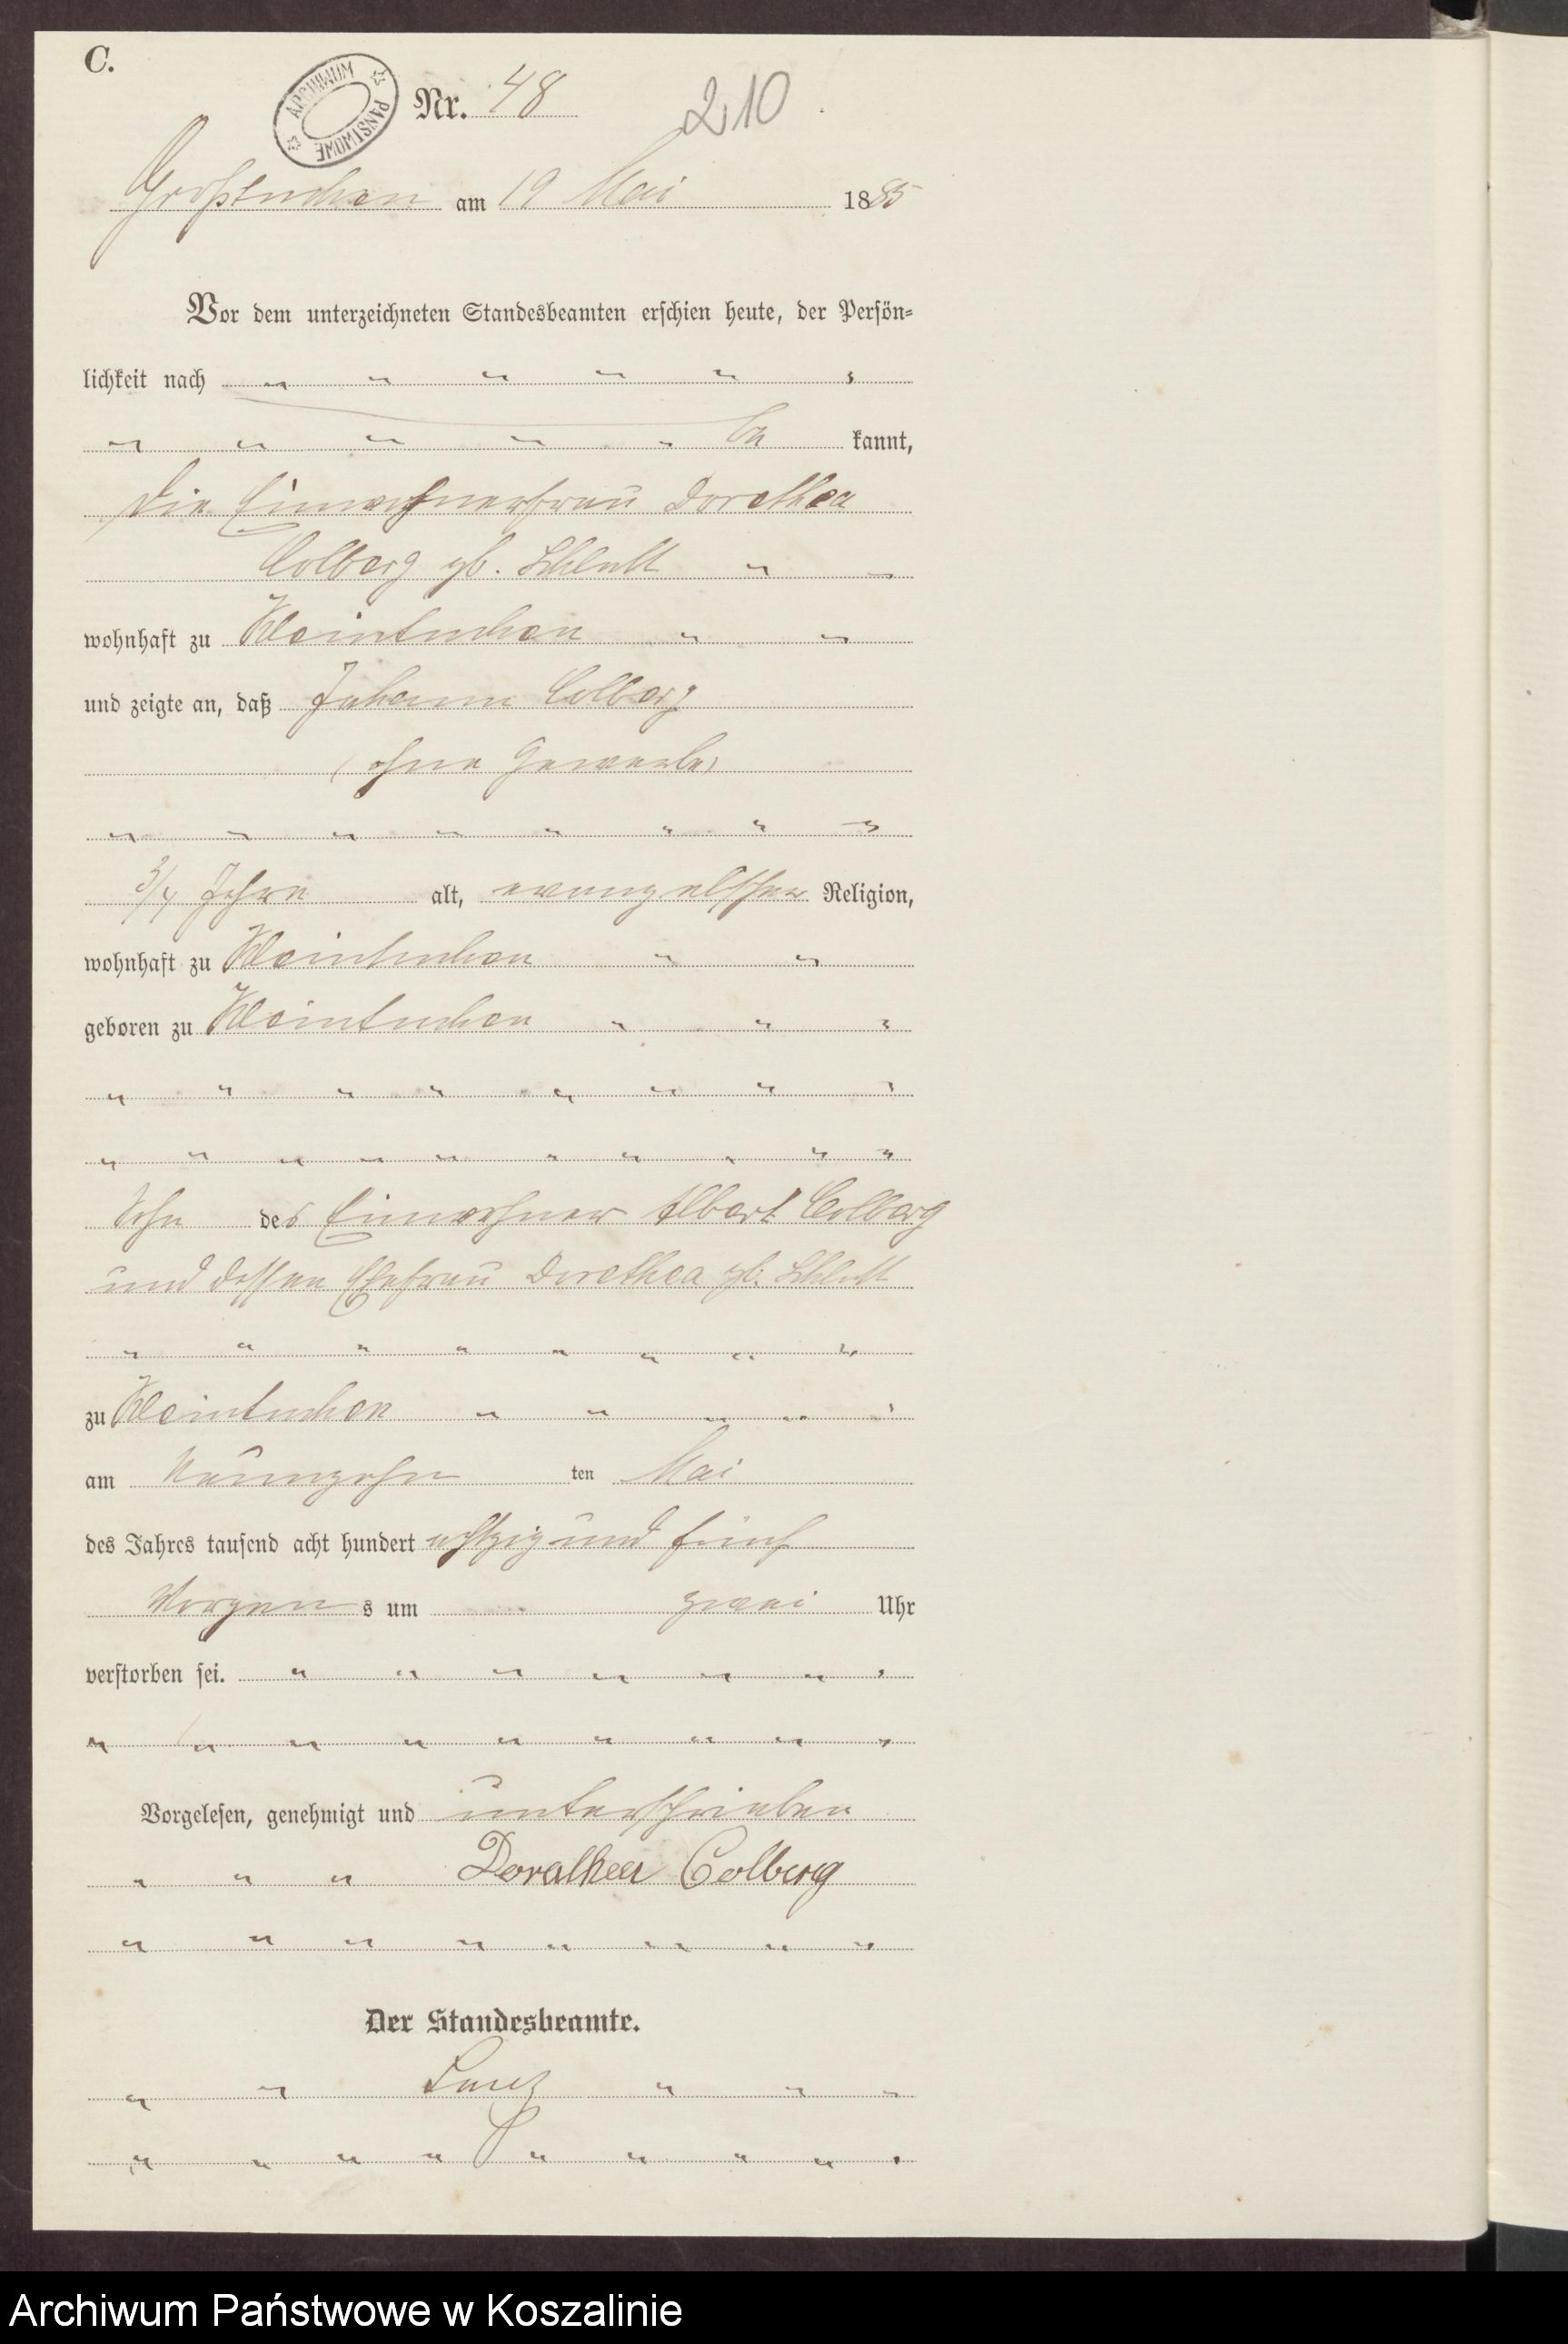 C.
ARCHIWUM PAŃSTWOWE
Nr. 48
210
Großtuchen am 19 Mai 1885
Vor dem unterzeichneten Standesbeamten erschien heute, der Persön-
lichkeit nach " " " " " "
" " " " " be kannt,
die Einwohnerfrau Dorothea
Colberg gb. " "
wohnhaft zu Kleintuchen " "
und zeigte an, daß Johann Colberg
(ohne Gewerbe)
" " " " " " " "
3/4 Jahre alt, evangelscher Religion,
wohnhaft zu Kleintuchen " "
geboren zu Kleintuchen " " "
" " " " " " " "
" " " " " " " " " "
Sohn des Einwohner Albert Colberg
und dessen Ehefrau Dorothea gb.
" " " " " " " "
zu Kleintuchen " " " " "
am Neunzehn ten Mai
des Jahres tausend acht hundert achtzig und fünf
Morgen s um zwei Uhr
verstorben sei. " " " " " " "
" " " " " " " " "
Vorgelesen, genehmigt und unterschrieben
" " " Dorathea Colberg
" " " " " " " "
Der Standesbeamte.
" " " " "
" " " " " " " " "
Archiwum Państwowe w Koszalinie